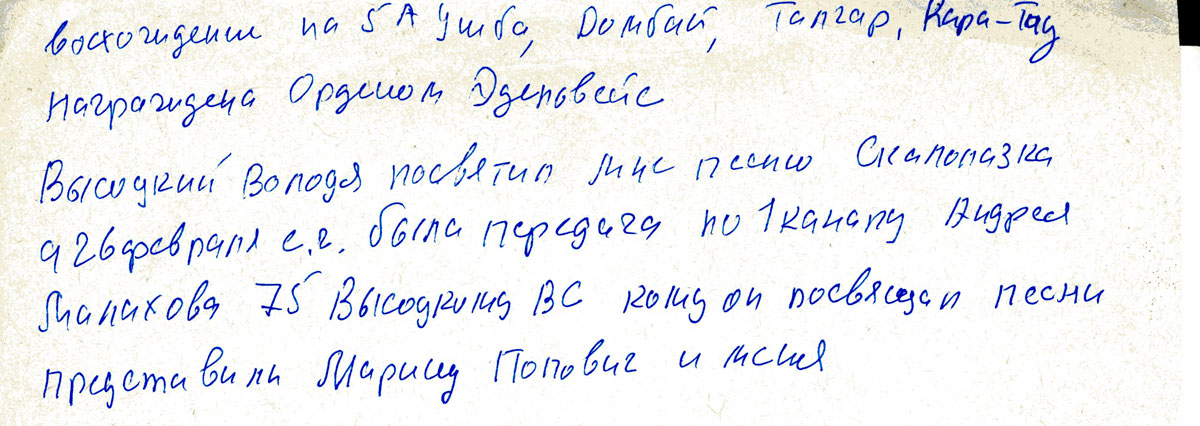 восхождение на 5А Ушба, Домбай, Талгар, Кара-Тау
Награждена Орденом Эдельвейс
Высоцкий Володя посвятил мне песню Скалолазка
а 26 февраля с.г. была передача по 1 каналу Андрея
Малахова 75 Высоцкому ВС кому он посвящал песни
представили Марину Попович и меня